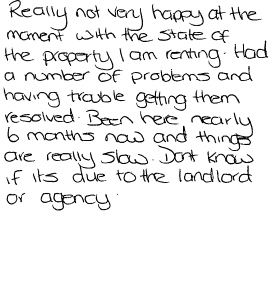 Really not very happy at the
moment with the state of
the property I am renting. Had
a number of problems and
having trouble getting them
resolved. Been here nearly
6 months now and things
are really slow. Dont know
if its due to the landlord
or agency.